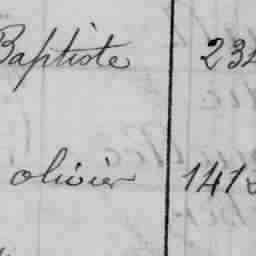 Baptiste 234
olivier 141